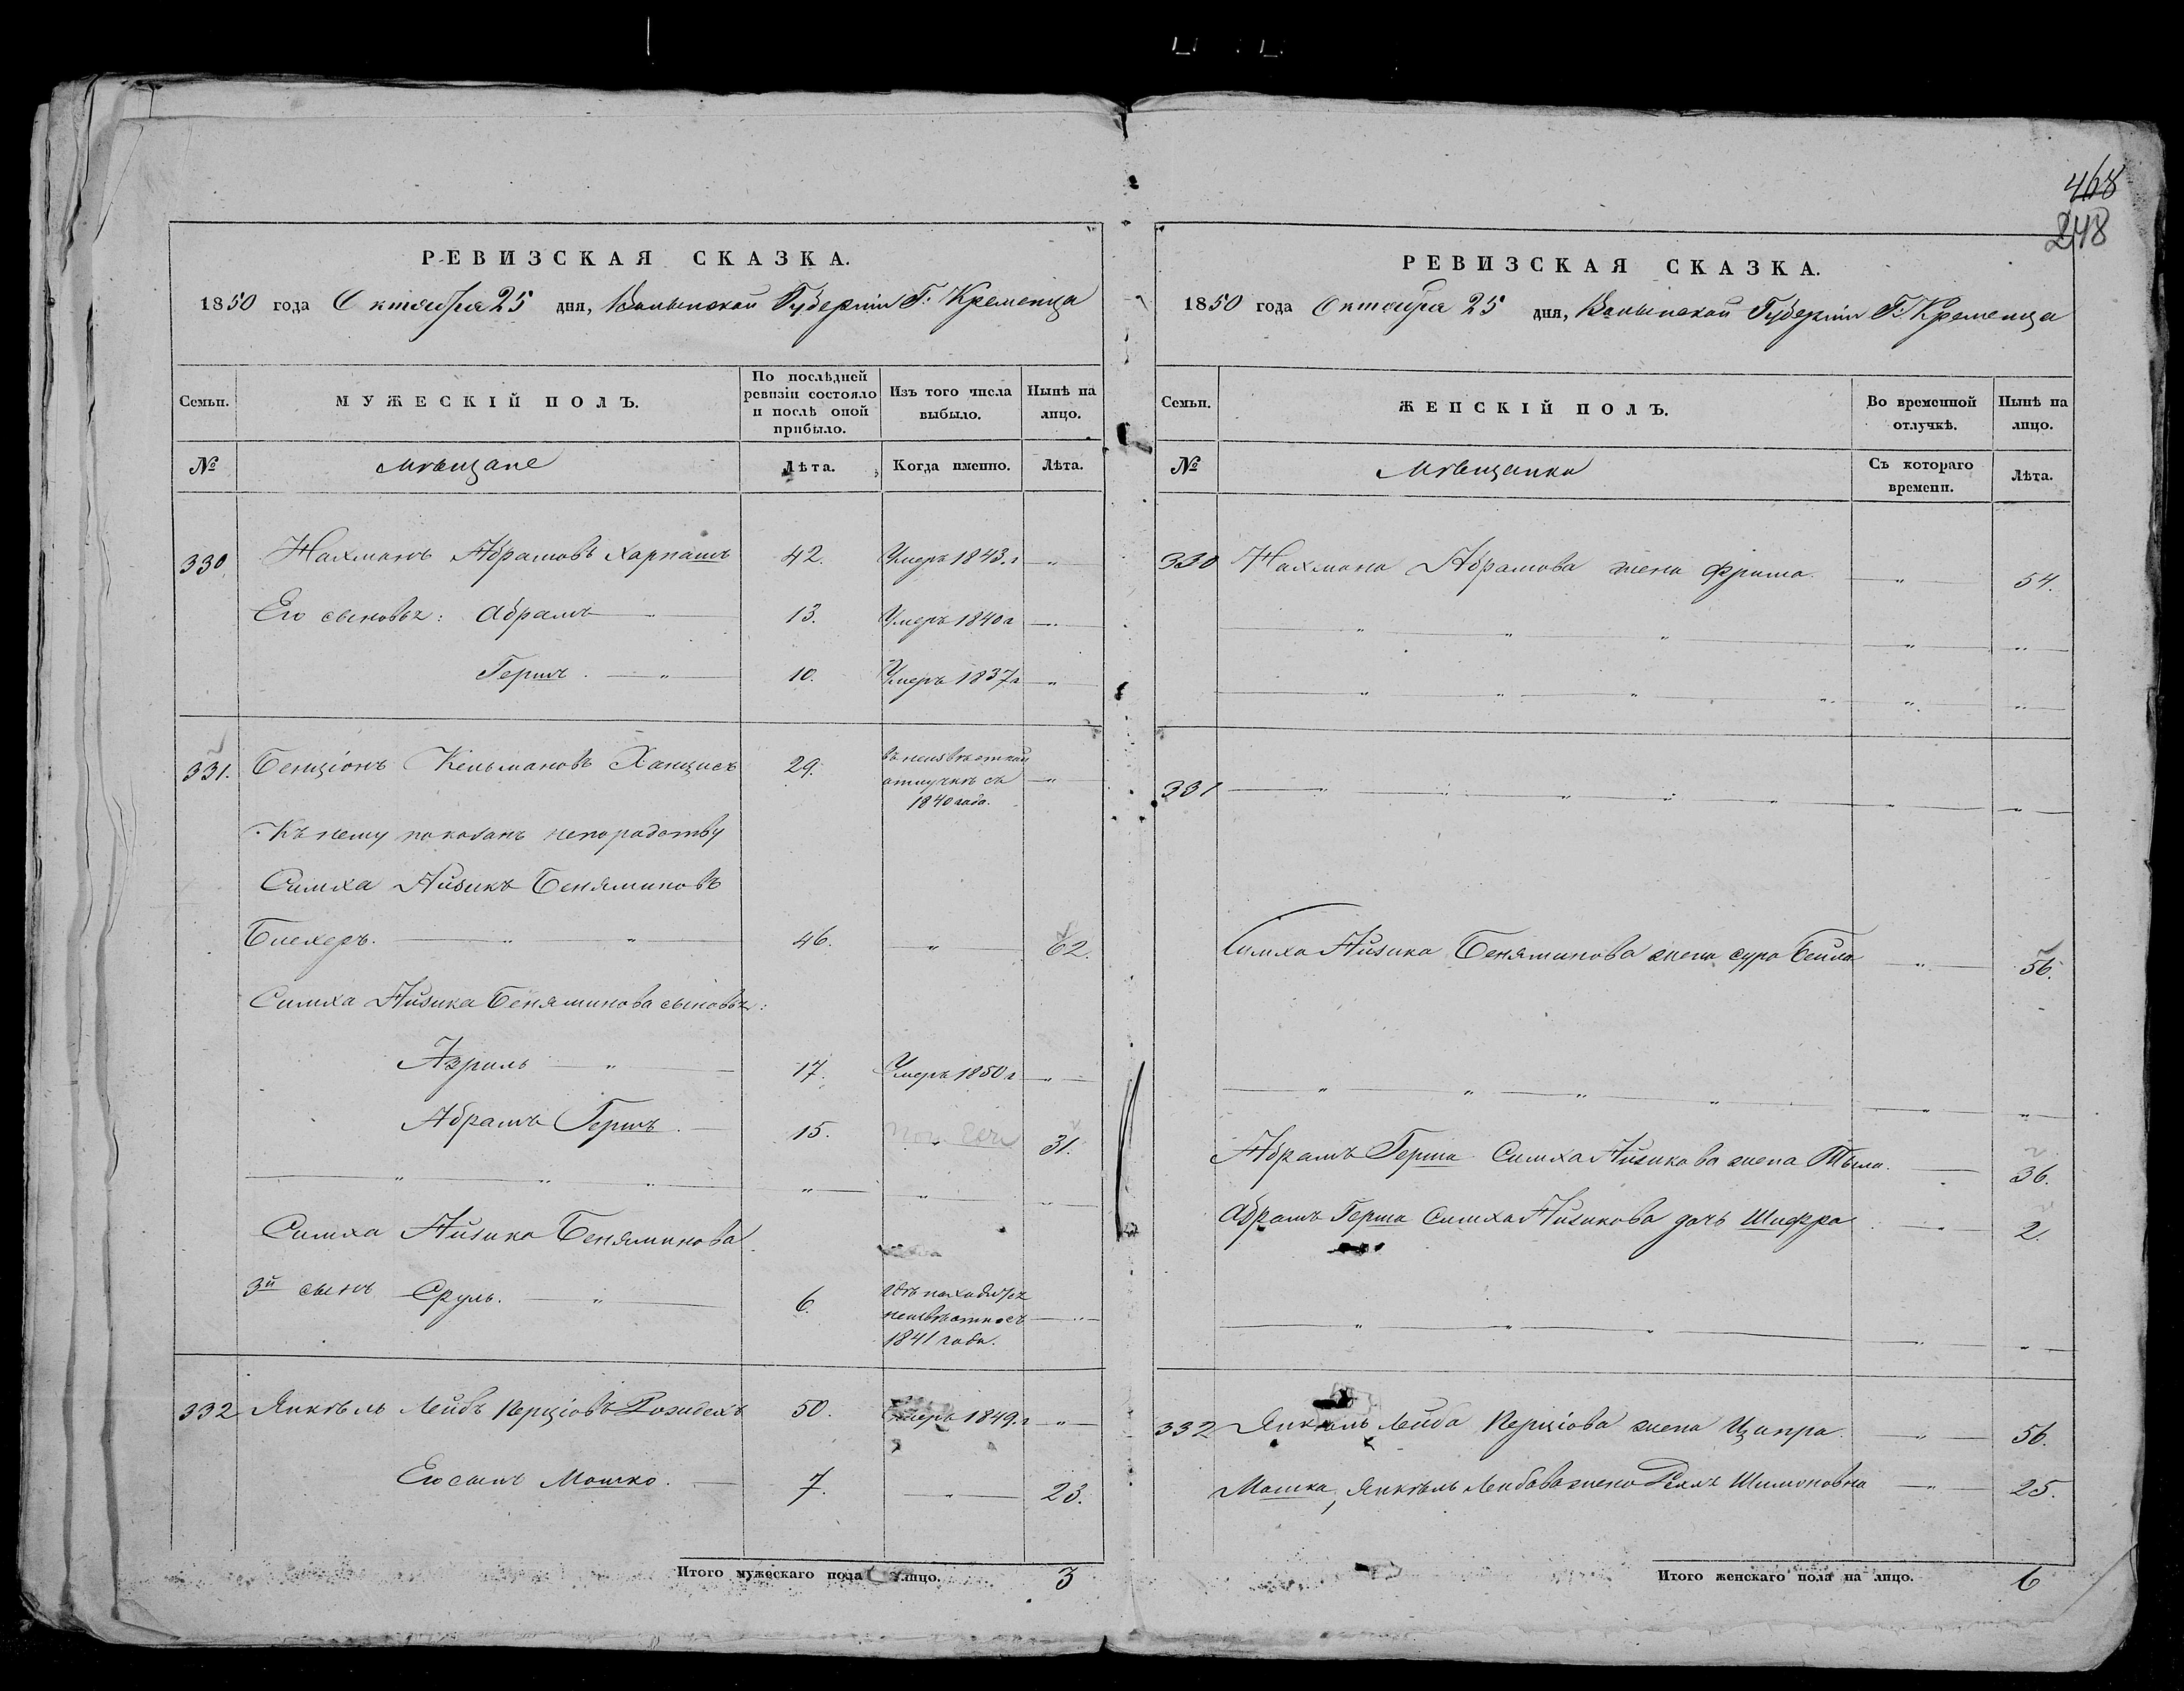 468
248
РЕВИЗСКАЯ СКАЗКА.
1850 года Октября 25 дня, Волынской Губернiи Г: Кременца
Семьи. МУЖЕСКIЙ ПОЛЪ. По послѣдней ревизiи состояло и послѣ оной прибыло. Изъ того числа выбыло. Нынѣ на лицо.
№ Мѣщане Лѣта. Когда именно. Лѣта.
330 Нахманъ Абрамовъ Харпашъ 42. Умеръ 1843.г "
Его сыновья: Абрамъ 13. Умеръ 1840г "
Гершъ. " 10. Умеръ 1837г "
331. Бенцiонъ Кельмановъ Ханцисъ 29. въ неизвѣстной "
отлучкѣ съ
1840 года.
Къ нему показанъ непородству
Симха Айзикъ Беняминовъ
Блехеръ. " " 46. " 62.
Симха Айзика Беняминова сыновья:
Азриль " 17. Умеръ 1850г "
Абрамъ Гершъ. 15. 31.
" " " " " "
Симха Айзика Беняминова
3й сынъ Сруль. " 6. гдѣ находится "
неизвѣстно съ
1841 года.
332 Янкѣль Лейбъ Перцiовъ 50. Умеръ 1849.г "
Его сынъ Мошко. 7. " 23.
Итого мужескаго пола лицо. 3
РЕВИЗСКАЯ СКАЗКА.
1850 года Октября 25 дня, Волынской Губернiи Г: Кременца
Семьи. ЖЕНСКIЙ ПОЛЪ. Во временной отлучкѣ. Нынѣ на лицо.
№ Мѣщанки Съ котораго времени. Лѣта.
330 Нахмана Абрамова жена Фрима. " 54.
" " " " "
" " " " " "
331 " " " " " " "
Симха Айзика Беняминова жена Сура Бейла " 56.
" " " " " "
Абрамъ Герша Симха Айзикова жена Тыла. 36.
Абрамъ Герша Симха Айзикова дочь Шифра " 2.
" " " " "
332 Янкѣль Лейба Перцiова жена Ципра. " 56.
Мошка, Янкѣль Лейбова жена Шимоновна " 25.
Итого женскаго пола на лицо. 6